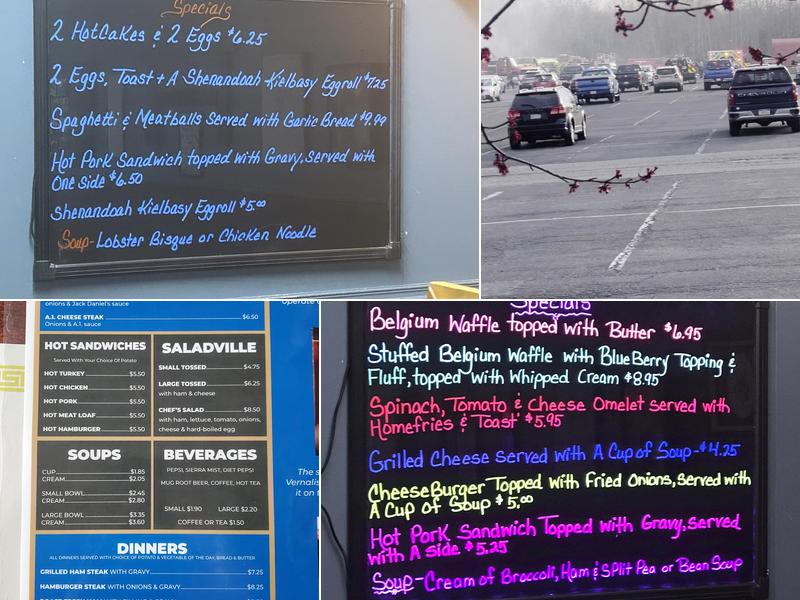 Specials
2 HotCakes & 2 Eggs $6.25
2 Eggs, Toast + A Shenandoah Kielbasy Eggroll $7.25
Spaghetti & Meatballs served with Garlic Bread $9.99
Hot Pork Sandwich topped with Gravy, served with
One side $6.50
Shenandoah Kielbasy Eggroll $5.00
Soup - Lobster Bisque or Chicken Noodle
onions & Jack Daniel's sauce
A.1. CHEESE STEAK $6.50
Onions & A.1. sauce
HOT SANDWICHES
Served With Your Choice Of Potato
HOT TURKEY $5.50
HOT CHICKEN $5.50
HOT PORK $5.50
HOT MEAT LOAF $5.50
HOT HAMBURGER $5.50
SALADVILLE
SMALL TOSSED $4.75
LARGE TOSSED $6.25
with ham & cheese
CHEF'S SALAD $8.50
with ham, lettuce, tomato, onions,
cheese & hard-boiled egg
SOUPS
CUP $1.85
CREAM $2.05
SMALL BOWL $2.45
CREAM $2.80
LARGE BOWL $3.35
CREAM $3.60
BEVERAGES
PEPSI, SIERRA MIST, DIET PEPSI
MUG ROOT BEER, COFFEE, HOT TEA
SMALL $1.90 LARGE $2.20
COFFEE OR TEA $1.50
DINNERS
ALL DINNERS SERVED WITH CHOICE OF POTATO & VEGETABLE OF THE DAY, BREAD & BUTTER
GRILLED HAM STEAK WITH GRAVY $7.25
HAMBURGER STEAK WITH ONIONS & GRAVY $8.25
operate
The s
Vernalis
it on t
Specials
Belgium Waffle topped with Butter $6.95
Stuffed Belgium Waffle with BlueBerry Topping &
Fluff, topped with Whipped Cream $8.95
Spinach, Tomato & Cheese Omelet served with
Homefries & Toast $5.95
Grilled Cheese served with A Cup of Soup - $4.25
CheeseBurger Topped with Fried Onions, served with
A Cup of Soup $5.00
Hot Pork Sandwich Topped with Gravy, served
with A side $5.25
Soup - Cream of Broccoli, Ham & Split Pea or Bean Soup